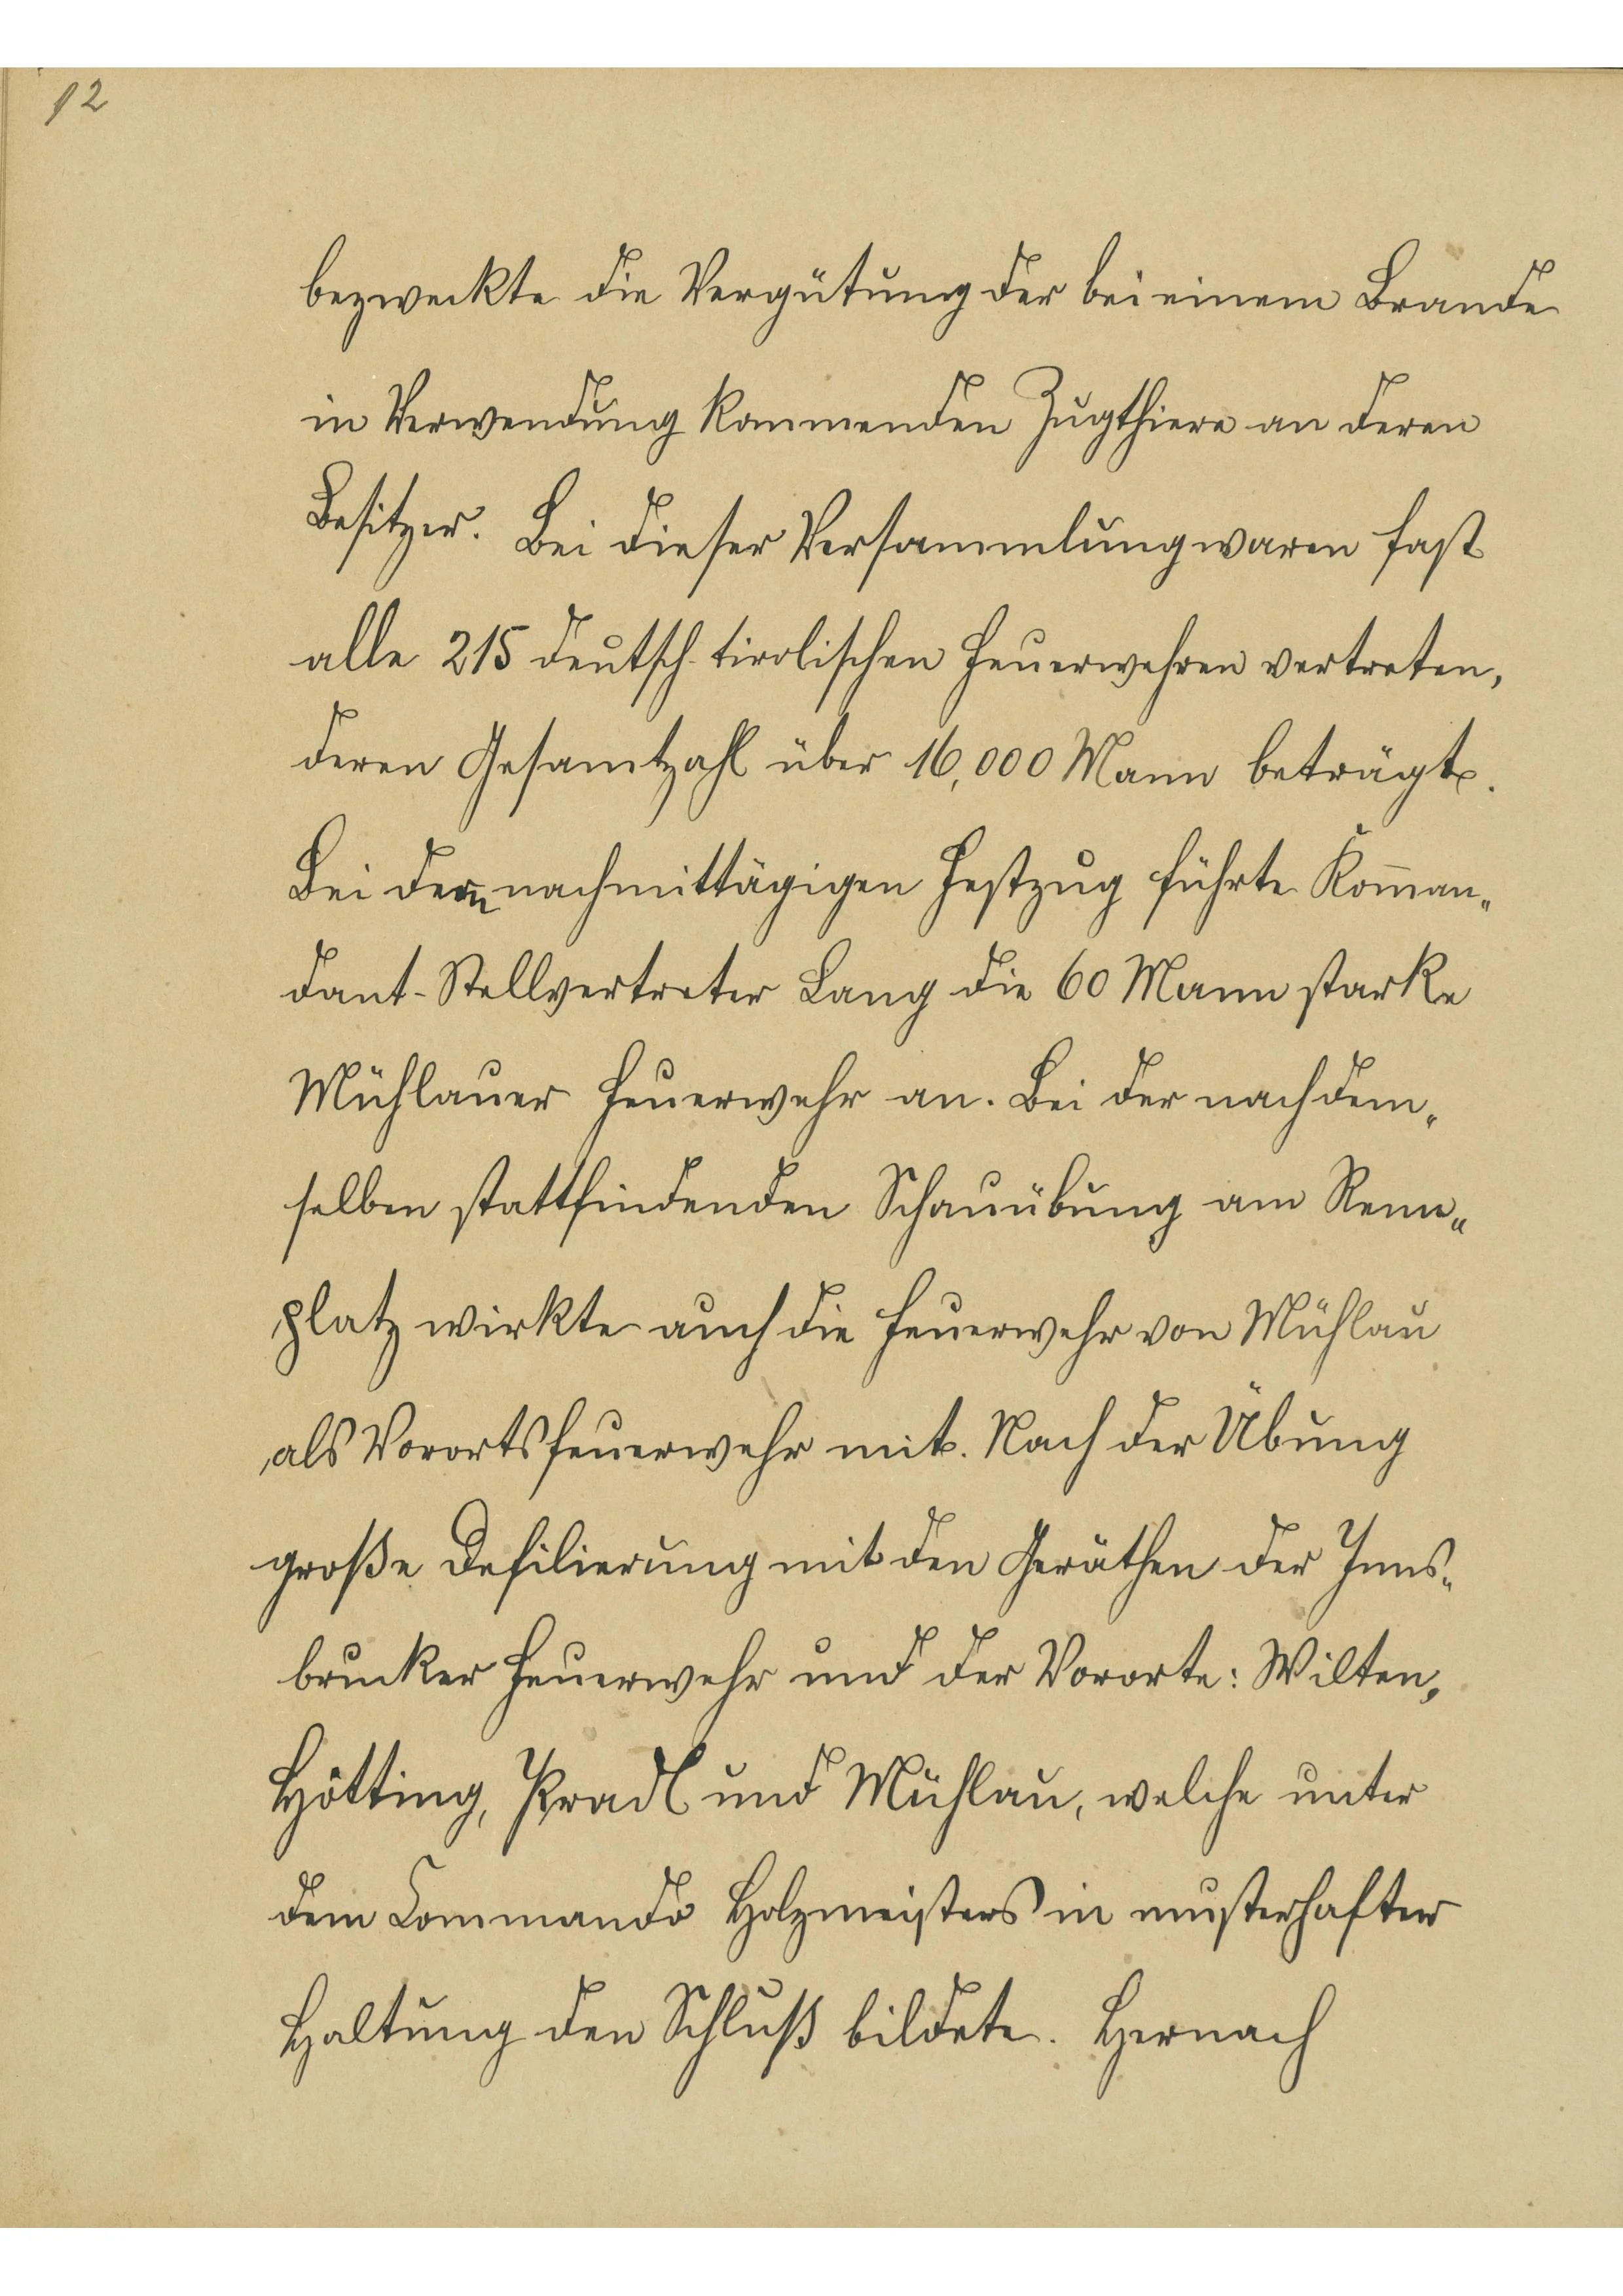 12
bezweckte die Vergütung der bei einem Brande
in Verwendung kommenden Zugthiere an deren
Besitzer. Bei dieser Versammlung waren fast
alle 215 deutsch-tirolischen Feuerwehren vertreten,
deren Gesamtzahl über 16,000 Mann beträgt.
Bei dem nachmittägigen Festzug führte Kom̄an„
dant-Stellvertreter Lang die 60 Mann starke
Mühlauer Feuerwehr an. Bei der nach dem„
selben stattfindenden Schauübung am Renn„
platz wirkte auch die Feuerwehr von Mühlau
als Vorortsfeuerwehr mit. Nach der Übung
große Defilierung mit den Geräthen der Inns„
brucker Feuerwehr und der Vororte: Wilten,
Hötting, Pradl und Mühlau, welche unter
dem Commando Holzmeisters in musterhafter
Haltung den Schluß bildete. Hernach